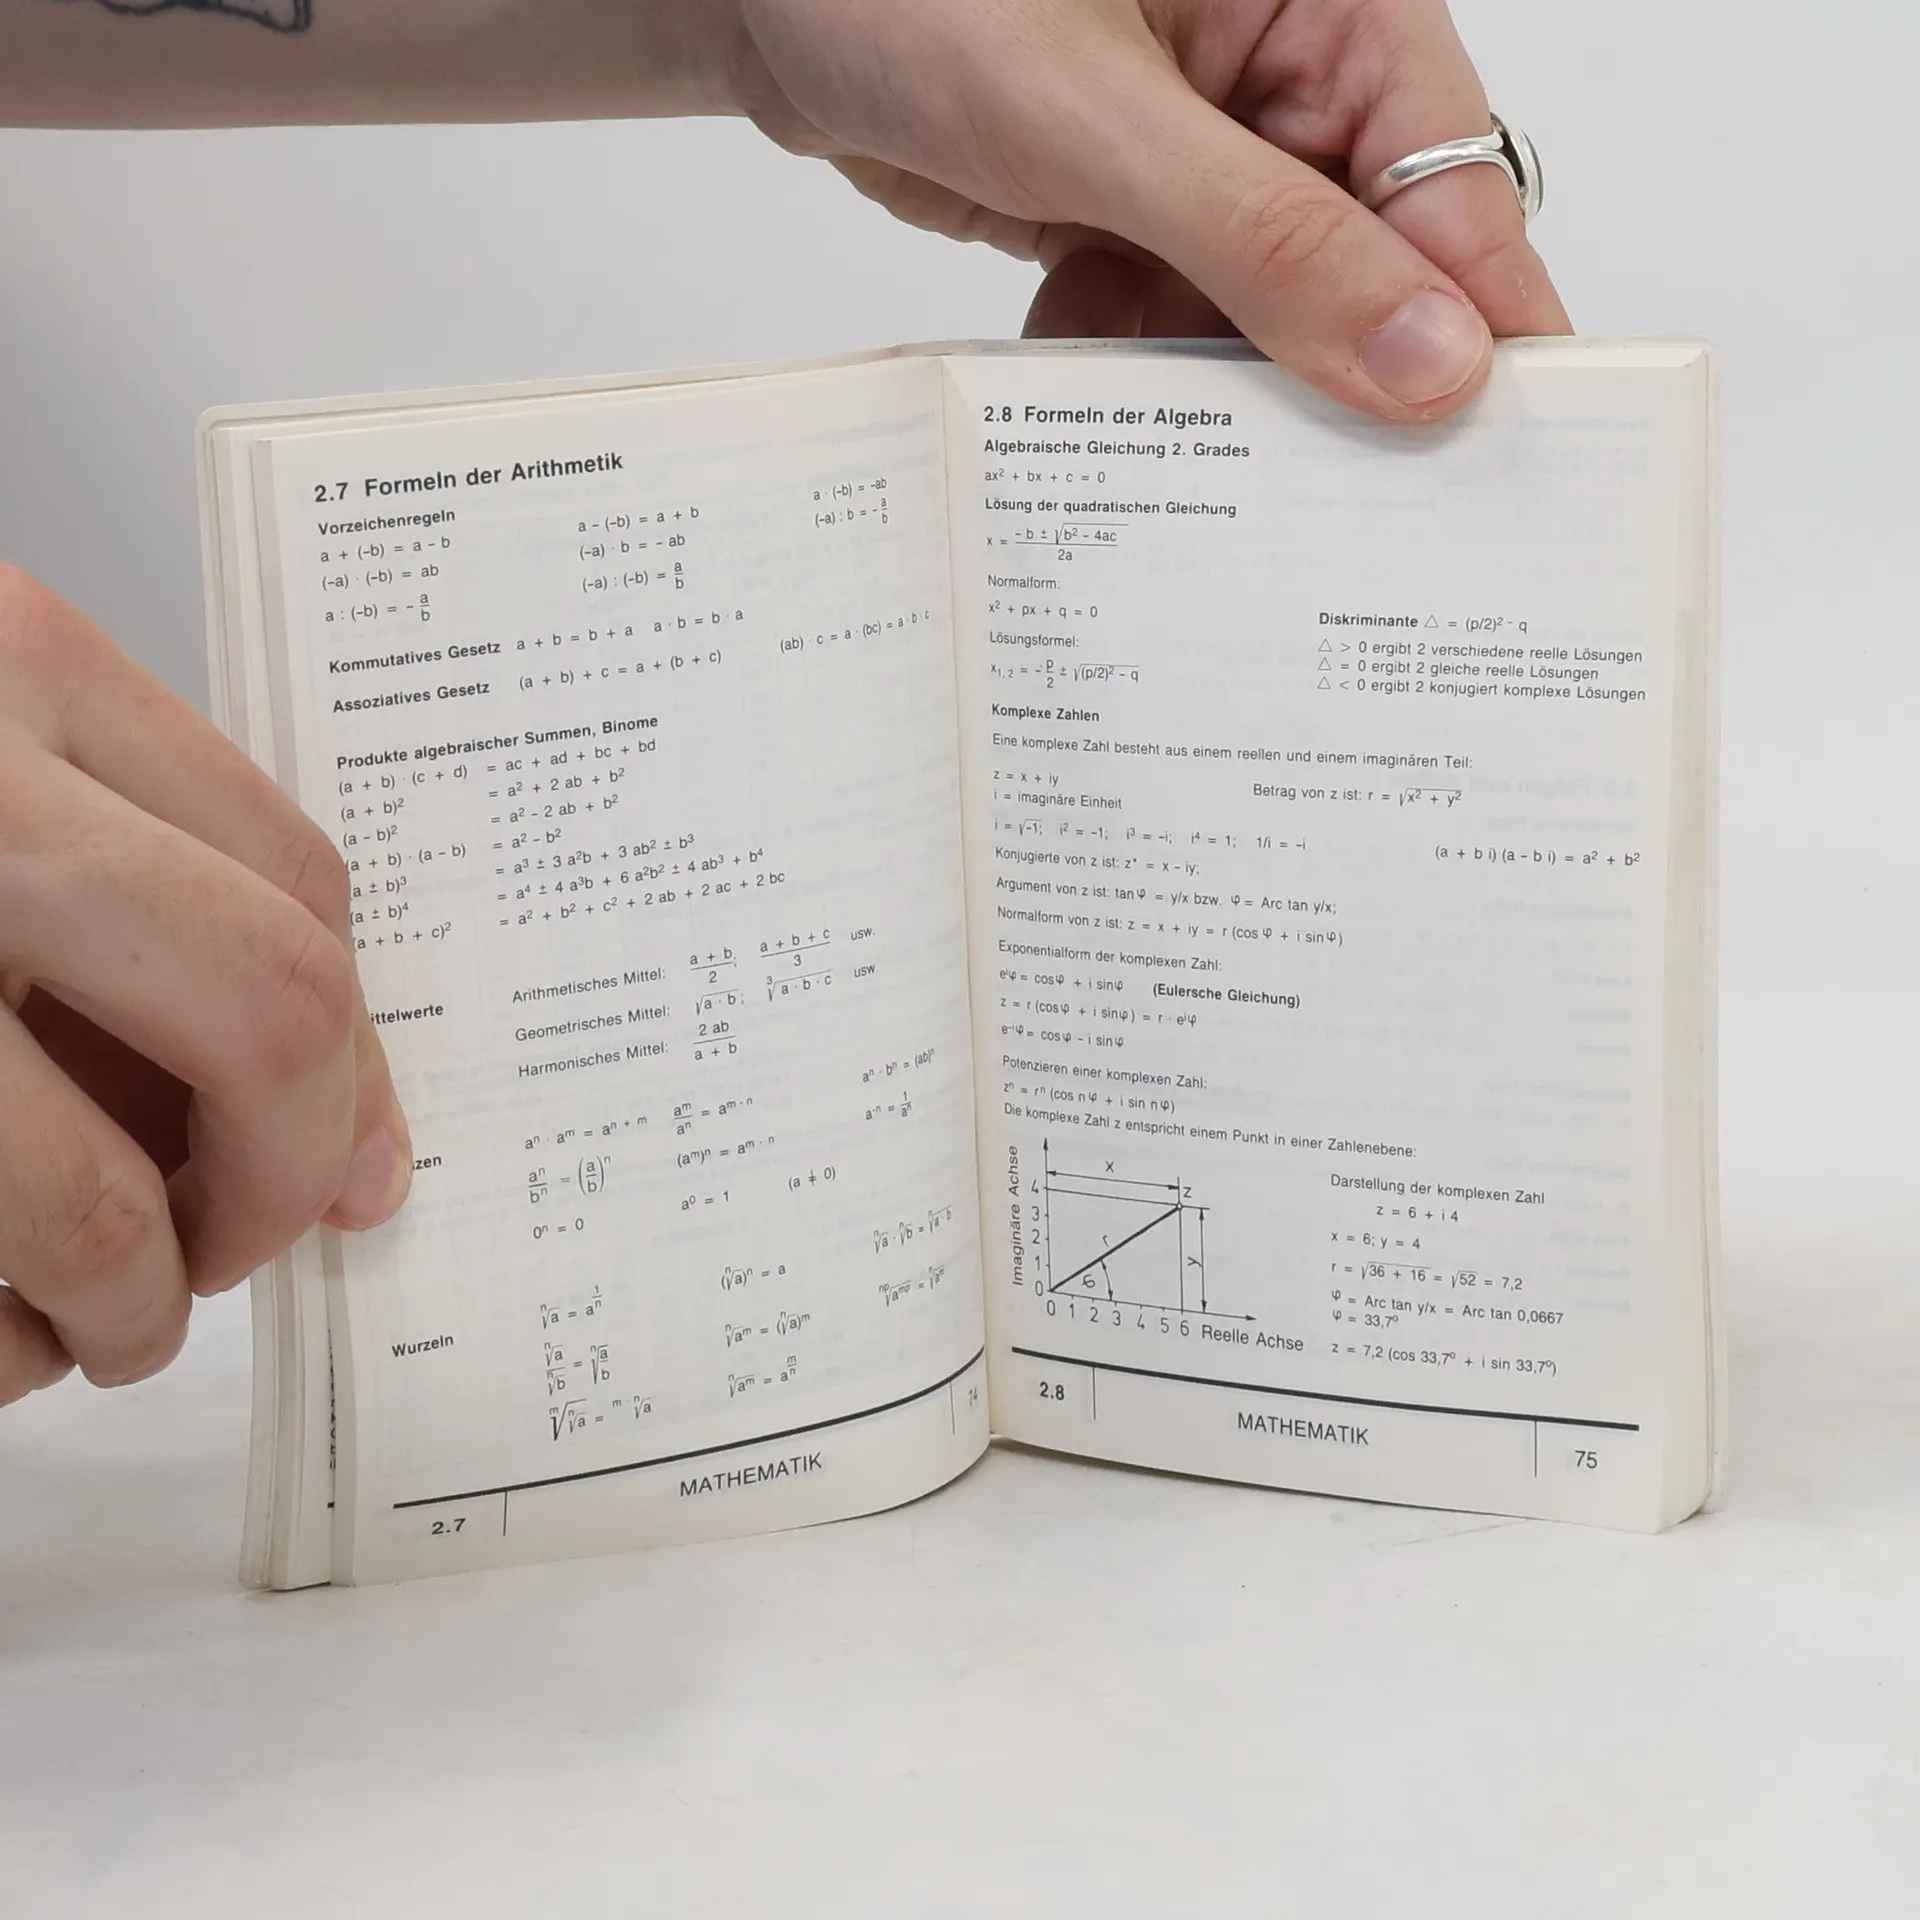 2.7 Formeln der Arithmetik
Vorzeichenregeln
a + (-b) = a - b
a - (-b) = a + b
a · (-b) = -ab
(-a) · (-b) = ab
(-a) · b = - ab
(-a) : b = - a/b
a : (-b) = - a/b
(-a) : (-b) = a/b
Kommutatives Gesetz a + b = b + a a · b = b · a
Assoziatives Gesetz (a + b) + c = a + (b + c) (ab) · c = a · (bc) = a · b · c
Produkte algebraischer Summen, Binome
(a + b) · (c + d) = ac + ad + bc + bd
(a + b)² = a² + 2 ab + b²
(a - b)² = a² - 2 ab + b²
(a + b) · (a - b) = a² - b²
(a ± b)³ = a³ ± 3 a²b + 3 ab² ± b³
(a ± b)⁴ = a⁴ ± 4 a³b + 6 a²b² ± 4 ab³ + b⁴
(a + b + c)² = a² + b² + c² + 2 ab + 2 ac + 2 bc
ittelwerte
Arithmetisches Mittel: (a + b)/2; (a + b + c)/3 usw.
Geometrisches Mittel: √(a · b); ³√(a · b · c) usw.
Harmonisches Mittel: 2 ab/(a + b)
zen
aⁿ · aᵐ = aⁿ⁺ᵐ aᵐ/aⁿ = aᵐ⁻ⁿ aⁿ · bⁿ = (ab)ⁿ
aⁿ/bⁿ = (a/b)ⁿ (aᵐ)ⁿ = aᵐ·ⁿ a⁻ⁿ = 1/aⁿ
0ⁿ = 0 a⁰ = 1 (a ≠ 0)
Wurzeln
ⁿ√a = a^(1/n) (ⁿ√a)ⁿ = a ⁿ√a · ⁿ√b = ⁿ√(a · b)
ⁿ√a/ⁿ√b = ⁿ√(a/b) ⁿ√aᵐ = (ⁿ√a)ᵐ ⁿᵖ√aᵐᵖ = ⁿ√aᵐ
ᵐ√(ⁿ√a) = ᵐ·ⁿ√a ⁿ√aᵐ = a^(m/n)
2.7
MATHEMATIK
74
2.8 Formeln der Algebra
Algebraische Gleichung 2. Grades
ax² + bx + c = 0
Lösung der quadratischen Gleichung
x = (- b ± √(b² - 4ac))/2a
Normalform:
x² + px + q = 0
Lösungsformel:
x₁,₂ = - p/2 ± √((p/2)² - q)
Diskriminante △ = (p/2)² - q
△ > 0 ergibt 2 verschiedene reelle Lösungen
△ = 0 ergibt 2 gleiche reelle Lösungen
△ < 0 ergibt 2 konjugiert komplexe Lösungen
Komplexe Zahlen
Eine komplexe Zahl besteht aus einem reellen und einem imaginären Teil:
z = x + iy
i = imaginäre Einheit
Betrag von z ist: r = √(x² + y²)
i = √-1; i² = -1; i³ = -i; i⁴ = 1; 1/i = -i
(a + b i) (a - b i) = a² + b²
Konjugierte von z ist: z* = x - iy;
Argument von z ist: tan φ = y/x bzw. φ = Arc tan y/x;
Normalform von z ist: z = x + iy = r (cos φ + i sin φ)
Exponentialform der komplexen Zahl:
e^(iφ) = cos φ + i sin φ (Eulersche Gleichung)
z = r (cos φ + i sin φ) = r · e^(iφ)
e^(-iφ) = cos φ - i sin φ
Potenzieren einer komplexen Zahl:
zⁿ = rⁿ (cos n φ + i sin n φ)
Die komplexe Zahl z entspricht einem Punkt in einer Zahlenebene:
Imaginäre Achse
4
3
2
1
0
x
z
r
y
φ
0 1 2 3 4 5 6 Reelle Achse
Darstellung der komplexen Zahl
z = 6 + i 4
x = 6; y = 4
r = √(36 + 16) = √52 = 7,2
φ = Arc tan y/x = Arc tan 0,0667
φ = 33,7⁰
z = 7,2 (cos 33,7⁰ + i sin 33,7⁰)
2.8
MATHEMATIK
75